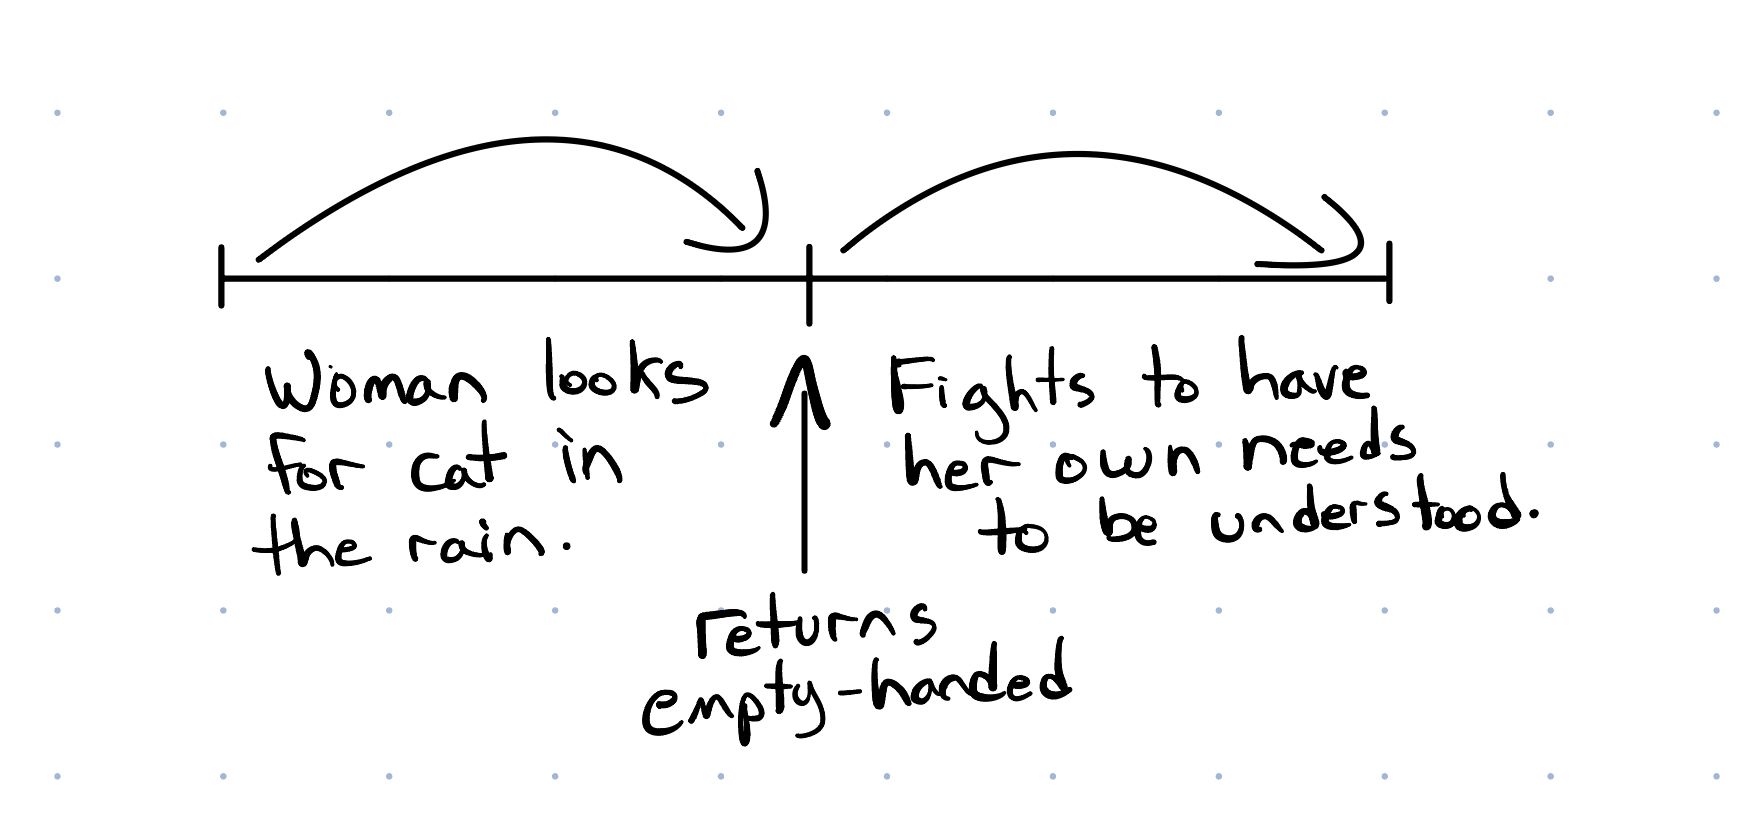 Woman looks
for cat in
the rain.
returns
empty-handed
Fights to have
her own needs
to be understood.